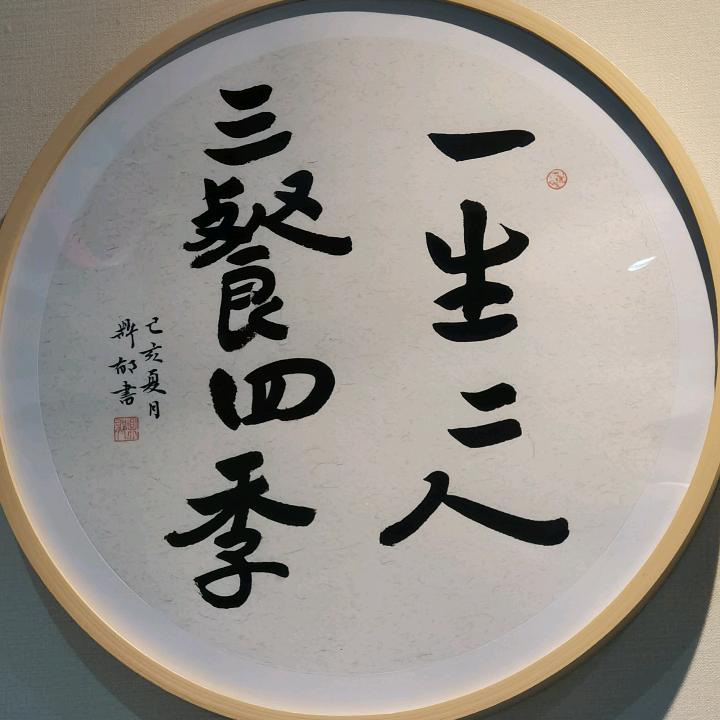 一生二人
三餐四季
己亥夏月
郁書